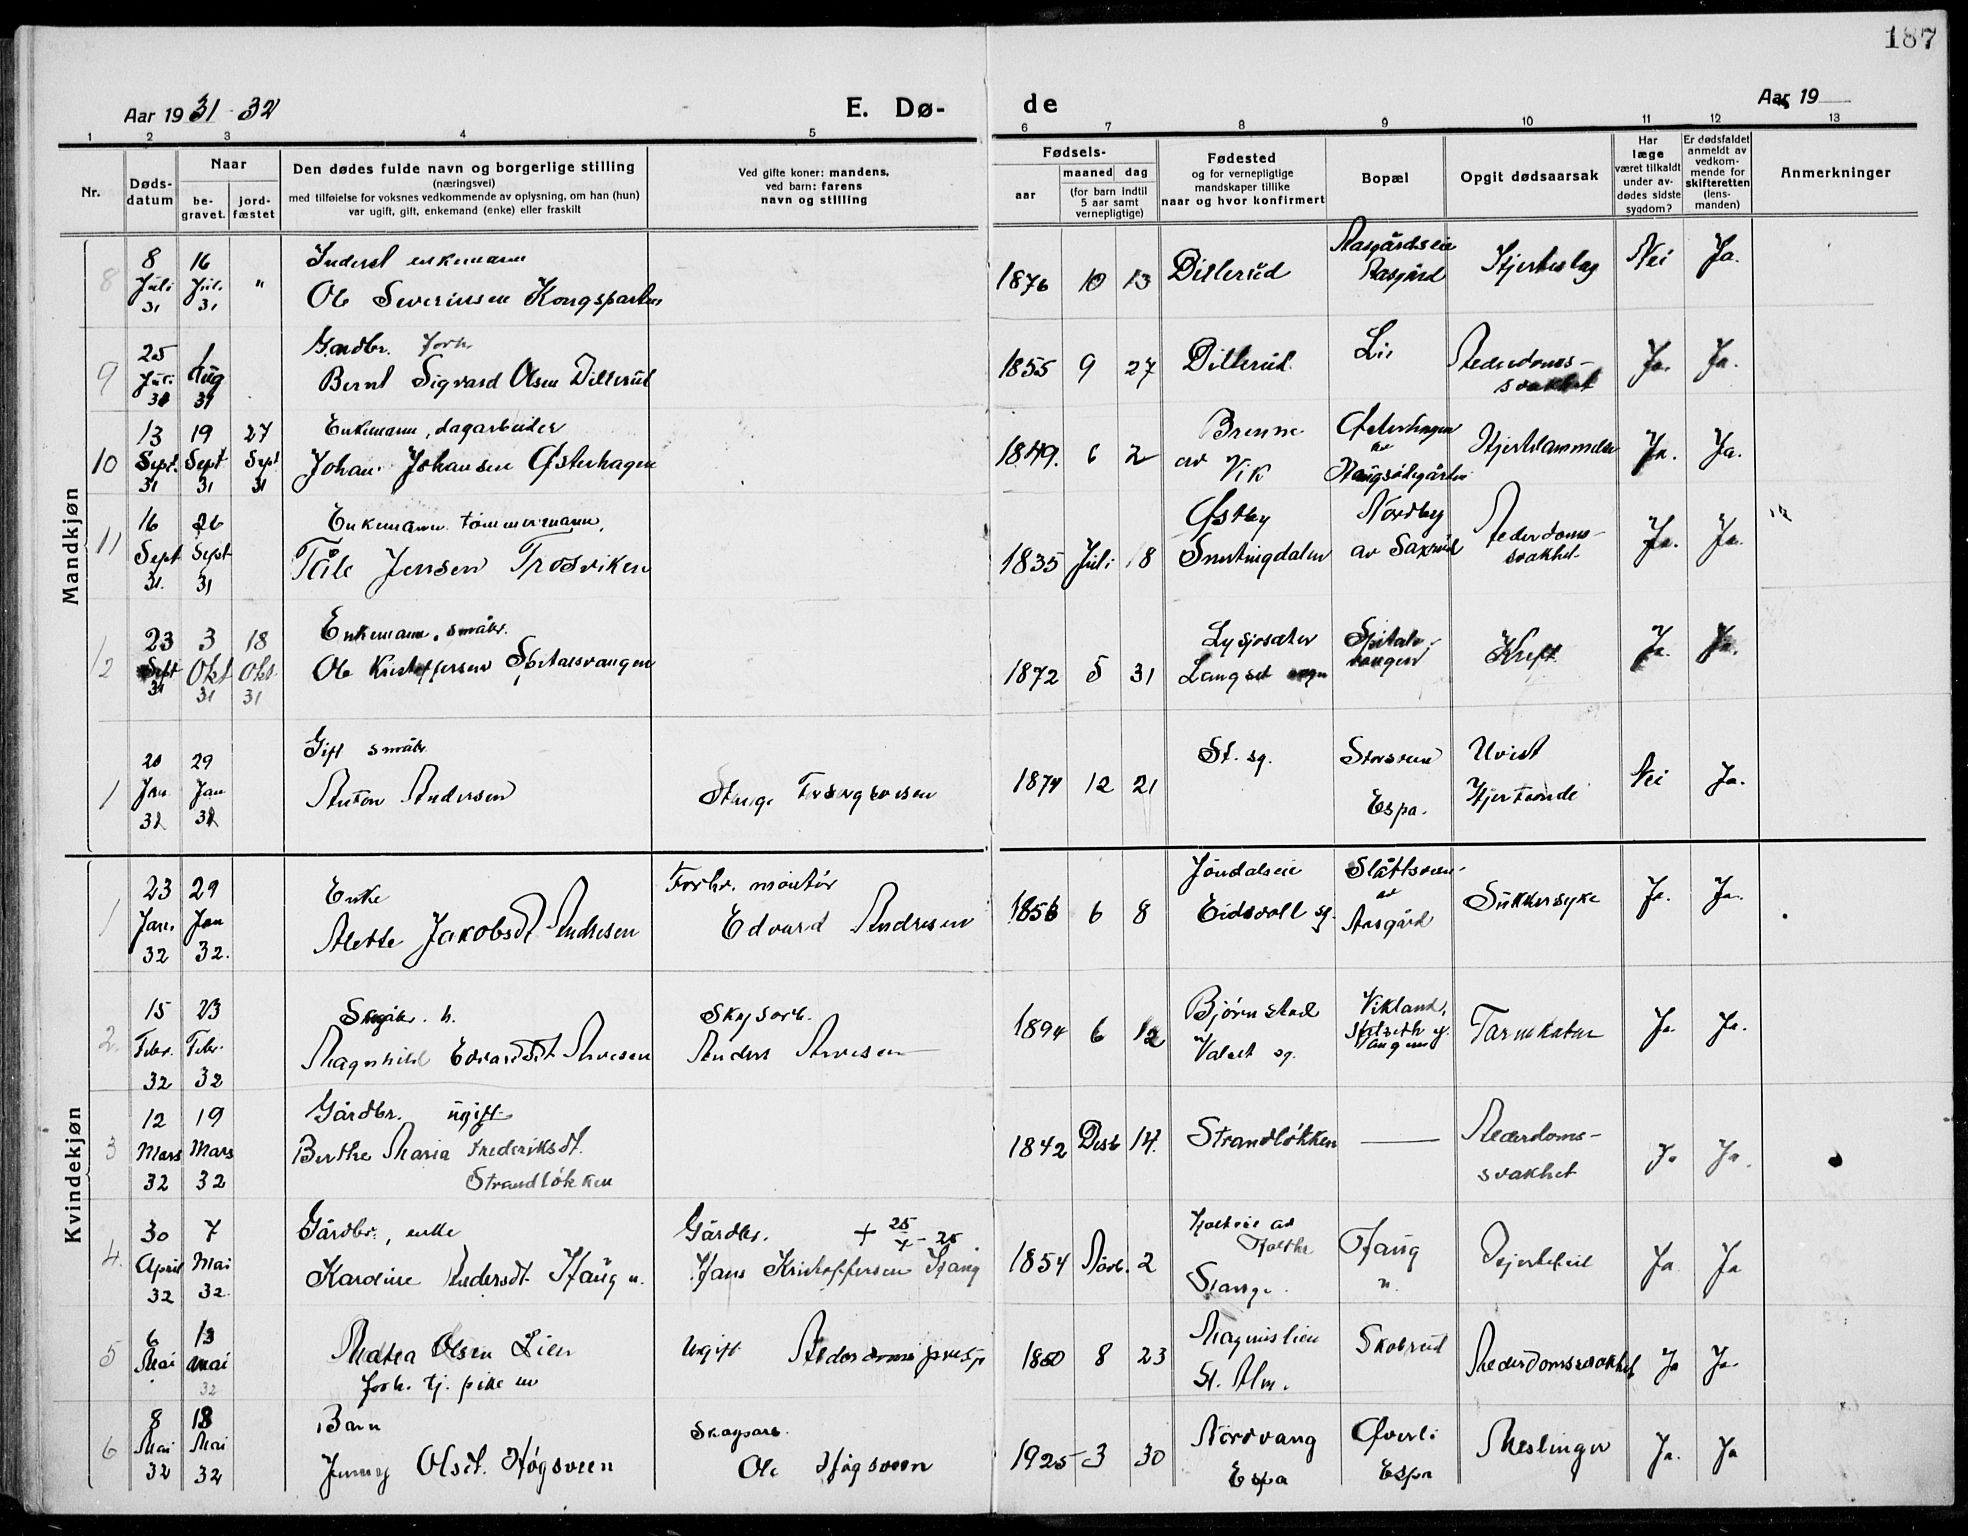 187
Aar 1931-32
E. Dø-
de
Aar 19
1 2 3 4 5 6 7 8 9 10 11 12 13
Nr.
Døds-
datum
Naar
be-
gravet.
jord-
fæstet
Den dødes fulde navn og borgerlige stilling
(næringsvei)
med tilføielse for voksnes vedkommende av oplysning, om han (hun)
var ugift, gift, enkemand (enke) eller fraskilt
Ved gifte koner: mandens,
ved barn: farens
navn og stilling
Fødsels-
aar
maaned dag
(for barn indtil
5 aar samt
vernepligtige)
Fødested
og for vernepligtige
mandskaper tillike
naar og hvor konfirmert
Bopæl
Opgit dødsaarsak
Har
læge
været tilkaldt
under av-
dødes sidste
sygdom?
Er dødsfaldet
anmeldt av
vedkom-
mende for
skifteretten
(lens-
manden)
Anmerkninger
Mandkjøn
8
8 Juli 31
16 Juli 31
"
Inderst enkemann
Ole Severinsen Kongsparten
1876 10 13
Dillerud
Aasgårdseie
Aasgård
Hjerteslag
Nei
Ja.
9
25 Juli 31
1 Aug 31
Gardbr. forh.
Bernt Sigvard Olsen Dillerud
1855 9 27
Dillerud
Lie
Alderdoms-
svakhet
Ja.
Ja.
10
13 Sept. 31
19 Sept 31
27 Sept 31
Enkemann, dagarbeider
Johan Johansen Østerhagen
1849. 6 2
Brenne
av Vik
Østerhagen
av
Hjertelammelse
Ja.
Ja.
11
16 Sept 31.
26 Sept 31
Enkemann tømmermann,
Påle Jensen Trosviken
1835 Juli 18
Østby
Snertingdalen
Nordby
av Saxrud
Alderdoms-
svakhet
Ja.
Ja.
12
23 Sept 31
3 Okt 31
18 Okt. 31
Enkemann, småbr.
Ole Kristoffersen Spitalsvangen
1872 5 31
Lysjosæter
Langset sogn
Spitals-
vangen
Kreft
Ja.
Ja.
1
20 Jan 32
29 Jan 32
Gift småbr.
Anton Andersen
Stange
1874 12 21
St. sg.
Storsveen
Espa.
Uvist
Hjerteonde
Nei
Ja.
Kvindekjøn
1
23 Jan. 32
29 Jan 32.
Enke
Alette Jakobsdt Andresen
Forhv. montør
Edvard Andresen
1856 6 8
Jøndalseie
Eidsvoll sg.
Slåttsveen
av
Aasgård
Sukkersyke
Ja.
Ja.
2.
15 Febr. 32
23 Febr. 32
Småbr. h.
Magnhild Edvardsdt Arnesen
Skogsarb.
Anders Arnesen
1894 6 12
Bjørnstad
Valset sg.
Vikland,
Tarmkatar
Ja
Ja.
3
12 Mars 32
19 Mars 32
Gårdbr. ugift
Berthe Maria Frederiksdt.
Strandløkken
1842 Desb 14.
Strandløkken
—
Alderdoms-
svakhet
Ja
Ja.
4.
30 April 32
7 Mai 32.
Gårdbr., enke
Karoline Andersdt. Haug n.
Gårdbr. + 25/4-25
Hans Kristoffersen Haug
1854 Novb. 2
Holteie av
Holthe
Stange.
Haug
n.
Hjertefeil
Ja
Ja
5
6 Mai
13 mai 32
Mathea Olsen Lien
forh. tj. pike
Ugift
1860 8 23
Magnislien
St. Alm.
Skobrud
Alderdomssvakhet
Ja
Ja.
6
8 Mai 32
18 Mai 32
Barn
Jenny Olsdt. Høgsveen
Skogsarb.
Ole Høgsveen
1925 3 30
Nordvang
Espa
Øverli
Espa
Meslinger
Ja.
Ja